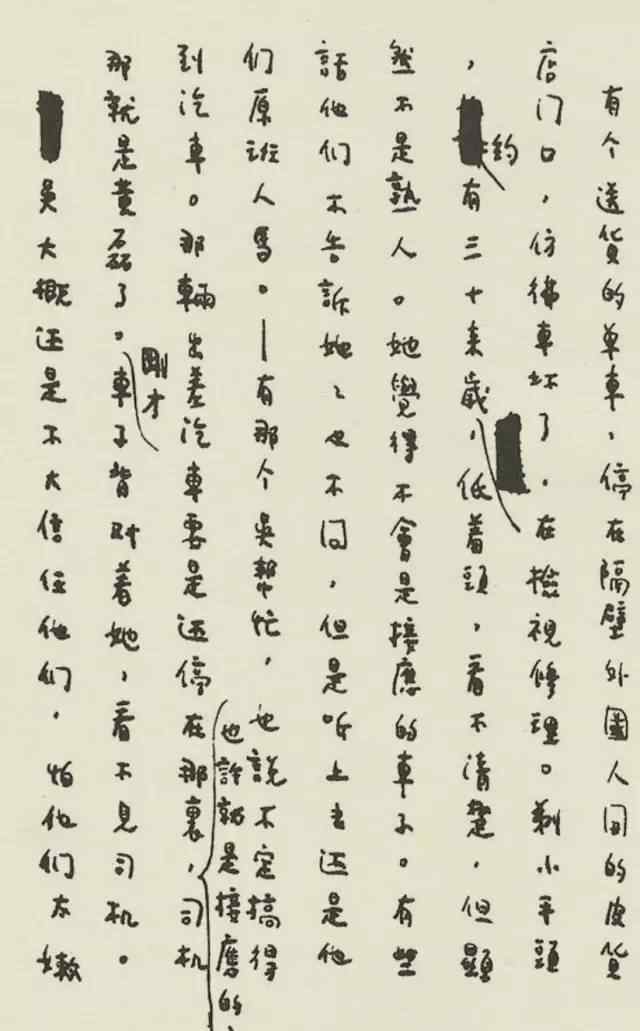 有个送貨的单車，停在隔壁外國人開的皮貨
店门口，仿彿車坏了，在檢視修理。剃小平頭
，約有三十來歲，低着頭，看不清楚，但顯
然不是熟人。她覺得不會是接應的車子。有些
話他们不告訴她々也不问，但是听上去还是他
们原班人馬。—有那个吳幫忙，也説不定搞得
到汽車。那輛出差汽車要是还停在那裏，也許就是接應的，司机
那就是黄磊了。剛才車子背对着她，看不見司机。
吳大概还是不大信任他们，怕他们太嫩